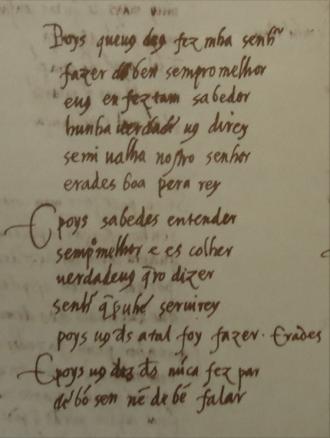 Poys queuꝯ d̶e̶ꝯ̶ fez mha senhʳ
fazer do ben sempro melhor
euꝯ en fez tam sabedor
hunha uerdade uꝯ direy
semi ualha nostro senhor
erades boa pera rey
E poys sabedes entender
sempº melhor e escolher
uerdadeuꝯ q̃ro dizer
senhʳ q̃ suhe seruirey
poys uꝯ d̃s atal foy fazer. Erades
E poys uꝯ d̃s nũca fez par
de bõ sen nẽ de bẽ falar